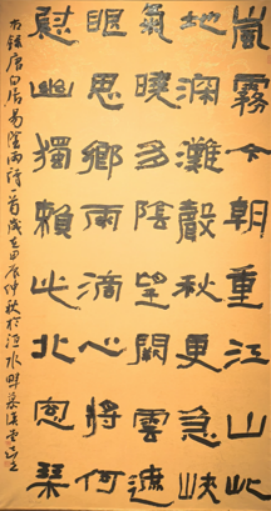 嵐霧今朝重江山此
地深灘聲秋更急峽
氣曉多陰望闕雲遮
眼思鄉雨滴心將何
慰幽獨賴此北窓琹
右錄唐白居易陰雨詩一首歲在甲仲秋於江水畔